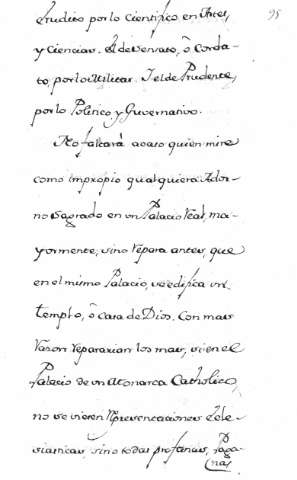 95
Erudito por lo Cientifico en Artes,
y Ciencias. El de Sensato, ô Corda-
to por lo Militar. I el de Prudente,
por lo Politico y Guvernativo.
No faltará acaso quien mire
como impropio qualquiera Ador-
no Sagrado en un Palacio Real, ma-
yormente, si no repara antes, que
en el mismo Palacio, se edifica un
templo, ô casa de Dios. Con mas
razon repararian los mas, si en el
Palacio de un Monarca Catholico,
no se viesen representaciones Ecle-
siasticas, sino todas profanas, Paga-
nas